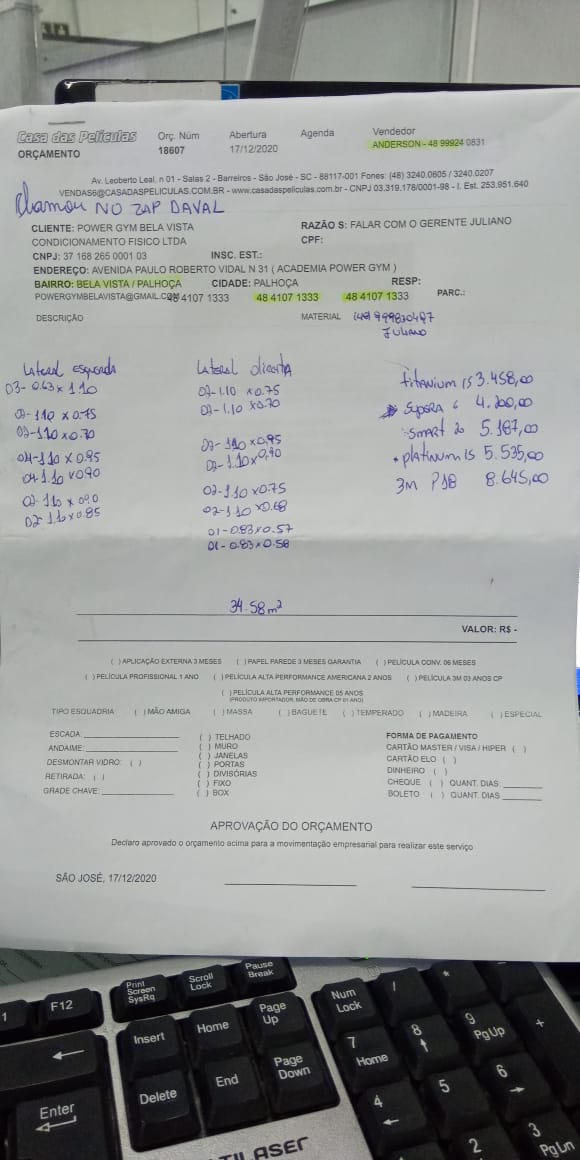 Casa das Películas
ORÇAMENTO
Orç. Núm
18607
Abertura
17/12/2020
Agenda
Vendedor
ANDERSON - 48 99924 0831
Av. Leoberto Leal, n 01 - Salas 2 - Barreiros - São José - SC - 88117-001 Fones: (48) 3240.0605 / 3240.0207
VENDAS6@CASADASPELICULAS.COM.BR - www.casadaspeliculas.com.br - CNPJ 03.319.178/0001-98 - I. Est. 253.951.640
Chamou NO ZAP DAVAL
CLIENTE: POWER GYM BELA VISTA
CONDICIONAMENTO FISICO LTDA
RAZÃO S: FALAR COM O GERENTE JULIANO
CPF:
CNPJ: 37 168 265 0001 03
INSC. EST.:
ENDEREÇO: AVENIDA PAULO ROBERTO VIDAL N 31 ( ACADEMIA POWER GYM )
BAIRRO: BELA VISTA / PALHOÇA CIDADE: PALHOÇA RESP:
POWERGYMBELAVISTA@GMAIL.COM 48 4107 1333 48 4107 1333 48 4107 1333 PARC.:
DESCRIÇÃO
MATERIAL
Juliano
Lateral esquerda
03 - 0.63 x 1.10
02 - 1.10 x 0.75
02 - 1.10 x 0.70
04 - 1.10 x 0.95
04 - 1.10 x 0.90
02 - 1.10 x 0.90
02 - 1.10 x 0.85
Lateral direita
02 - 1.10 x 0.75
02 - 1.10 x 0.70
02 - 1.10 x 0.95
02 - 1.10 x 0.90
02 - 1.10 x 0.75
02 - 1.10 x 0.68
01 - 0.83 x 0.57
01 - 0.83 x 0.58
titanium 15 3.458,00
Supera 6 4.200,00
smart 20 5.187,00
platinum 15 5.535,00
3M P18 8.645,00
34.58 m²
VALOR: R$ -
( ) APLICAÇÃO EXTERNA 3 MESES ( ) PAPEL PAREDE 3 MESES GARANTIA ( ) PELÍCULA CONV. 06 MESES
( ) PELÍCULA PROFISSIONAL 1 ANO ( ) PELÍCULA ALTA PERFORMANCE AMERICANA 2 ANOS ( ) PELÍCULA 3M 03 ANOS CP
( ) PELÍCULA ALTA PERFORMANCE 05 ANOS
(PRODUTO IMPORTADOR, MÃO DE OBRA CP 01 ANO)
TIPO ESQUADRIA ( ) MÃO AMIGA ( ) MASSA ( ) BAGUETE ( ) TEMPERADO ( ) MADEIRA ( ) ESPECIAL
ESCADA:
ANDAIME:
DESMONTAR VIDRO: ( )
RETIRADA: ( )
GRADE CHAVE:
( ) TELHADO
( ) MURO
( ) JANELAS
( ) PORTAS
( ) DIVISÓRIAS
( ) FIXO
( ) BOX
FORMA DE PAGAMENTO
CARTÃO MASTER / VISA / HIPER ( )
CARTÃO ELO ( )
DINHEIRO ( )
CHEQUE ( ) QUANT. DIAS
BOLETO ( ) QUANT. DIAS
APROVAÇÃO DO ORÇAMENTO
Declaro aprovado o orçamento acima para a movimentação empresarial para realizar este serviço
SÃO JOSÉ, 17/12/2020
F12
Print Screen SysRq
Scroll Lock
Pause Break
Insert
Home
Page Up
Num Lock
/
*
Delete
End
Page Down
7 Home
8
9 PgUp
+
Enter
4
5
6
2
3 PgLn
TILASER